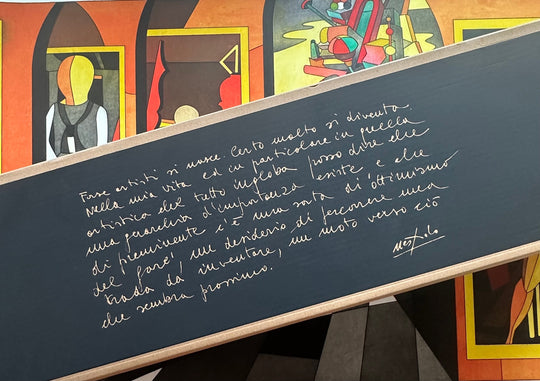 Forse artisti si nasce. Certo molto si diventa.
Nella mia vita ed in particolare in quella
artistica del tutto ingloba posso dire che
una gerarchia d'importanza esiste e che
di preminente c'è una sorta di "ottimismo
del fare", un desiderio di percorrere una
strada da inventare, un moto verso ciò
che sembra prossimo.